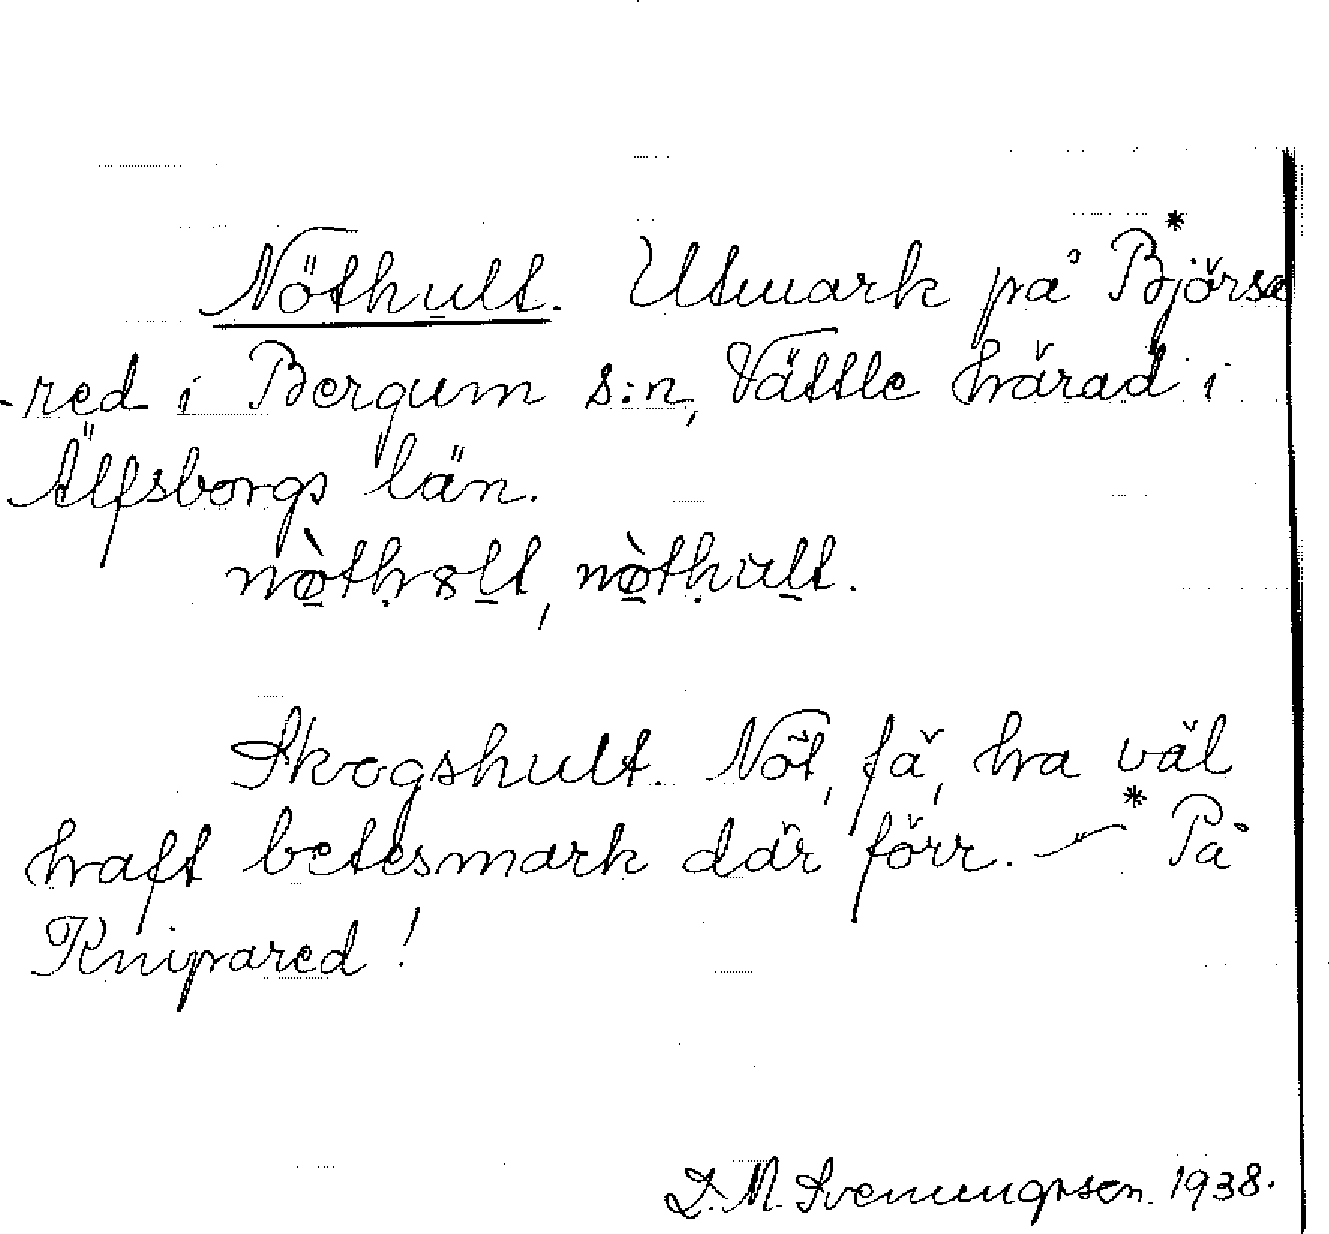 Nöthult. Utmark på Björsa*
-red i Bergum s:n, Vättle härad i
Älfsborgs län.
nø̀tḥɤlt, nø̀tḥult.
Skogshult. Nöt, fä, ha väl
haft betesmark där förr. — * På
Knipared!
D. M. Svenungsson. 1938.